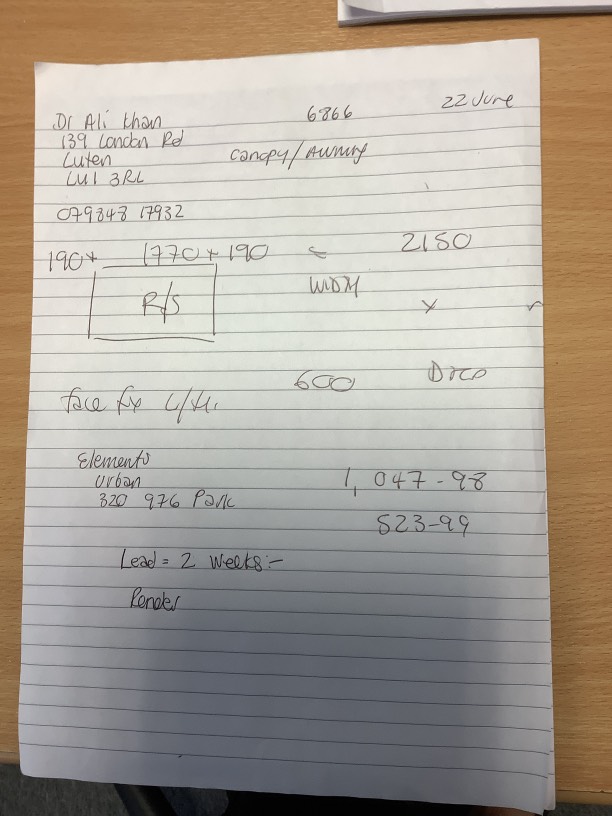 Dr Ali Khan 6866 22 June
139 London Rd
Luten Canopy/Awning
LU1 3RL
079848 17932
190+ 1770+190 = 2150
R/S WDM x
600 Drop
face fix L/H.
Elements
Urban 1,047-98
320 976 Park
523-99
Lead = 2 weeks:-
Render